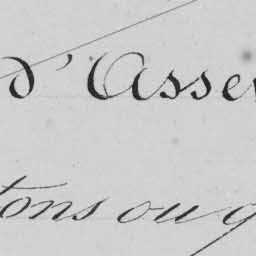 d'Asse
tons ou